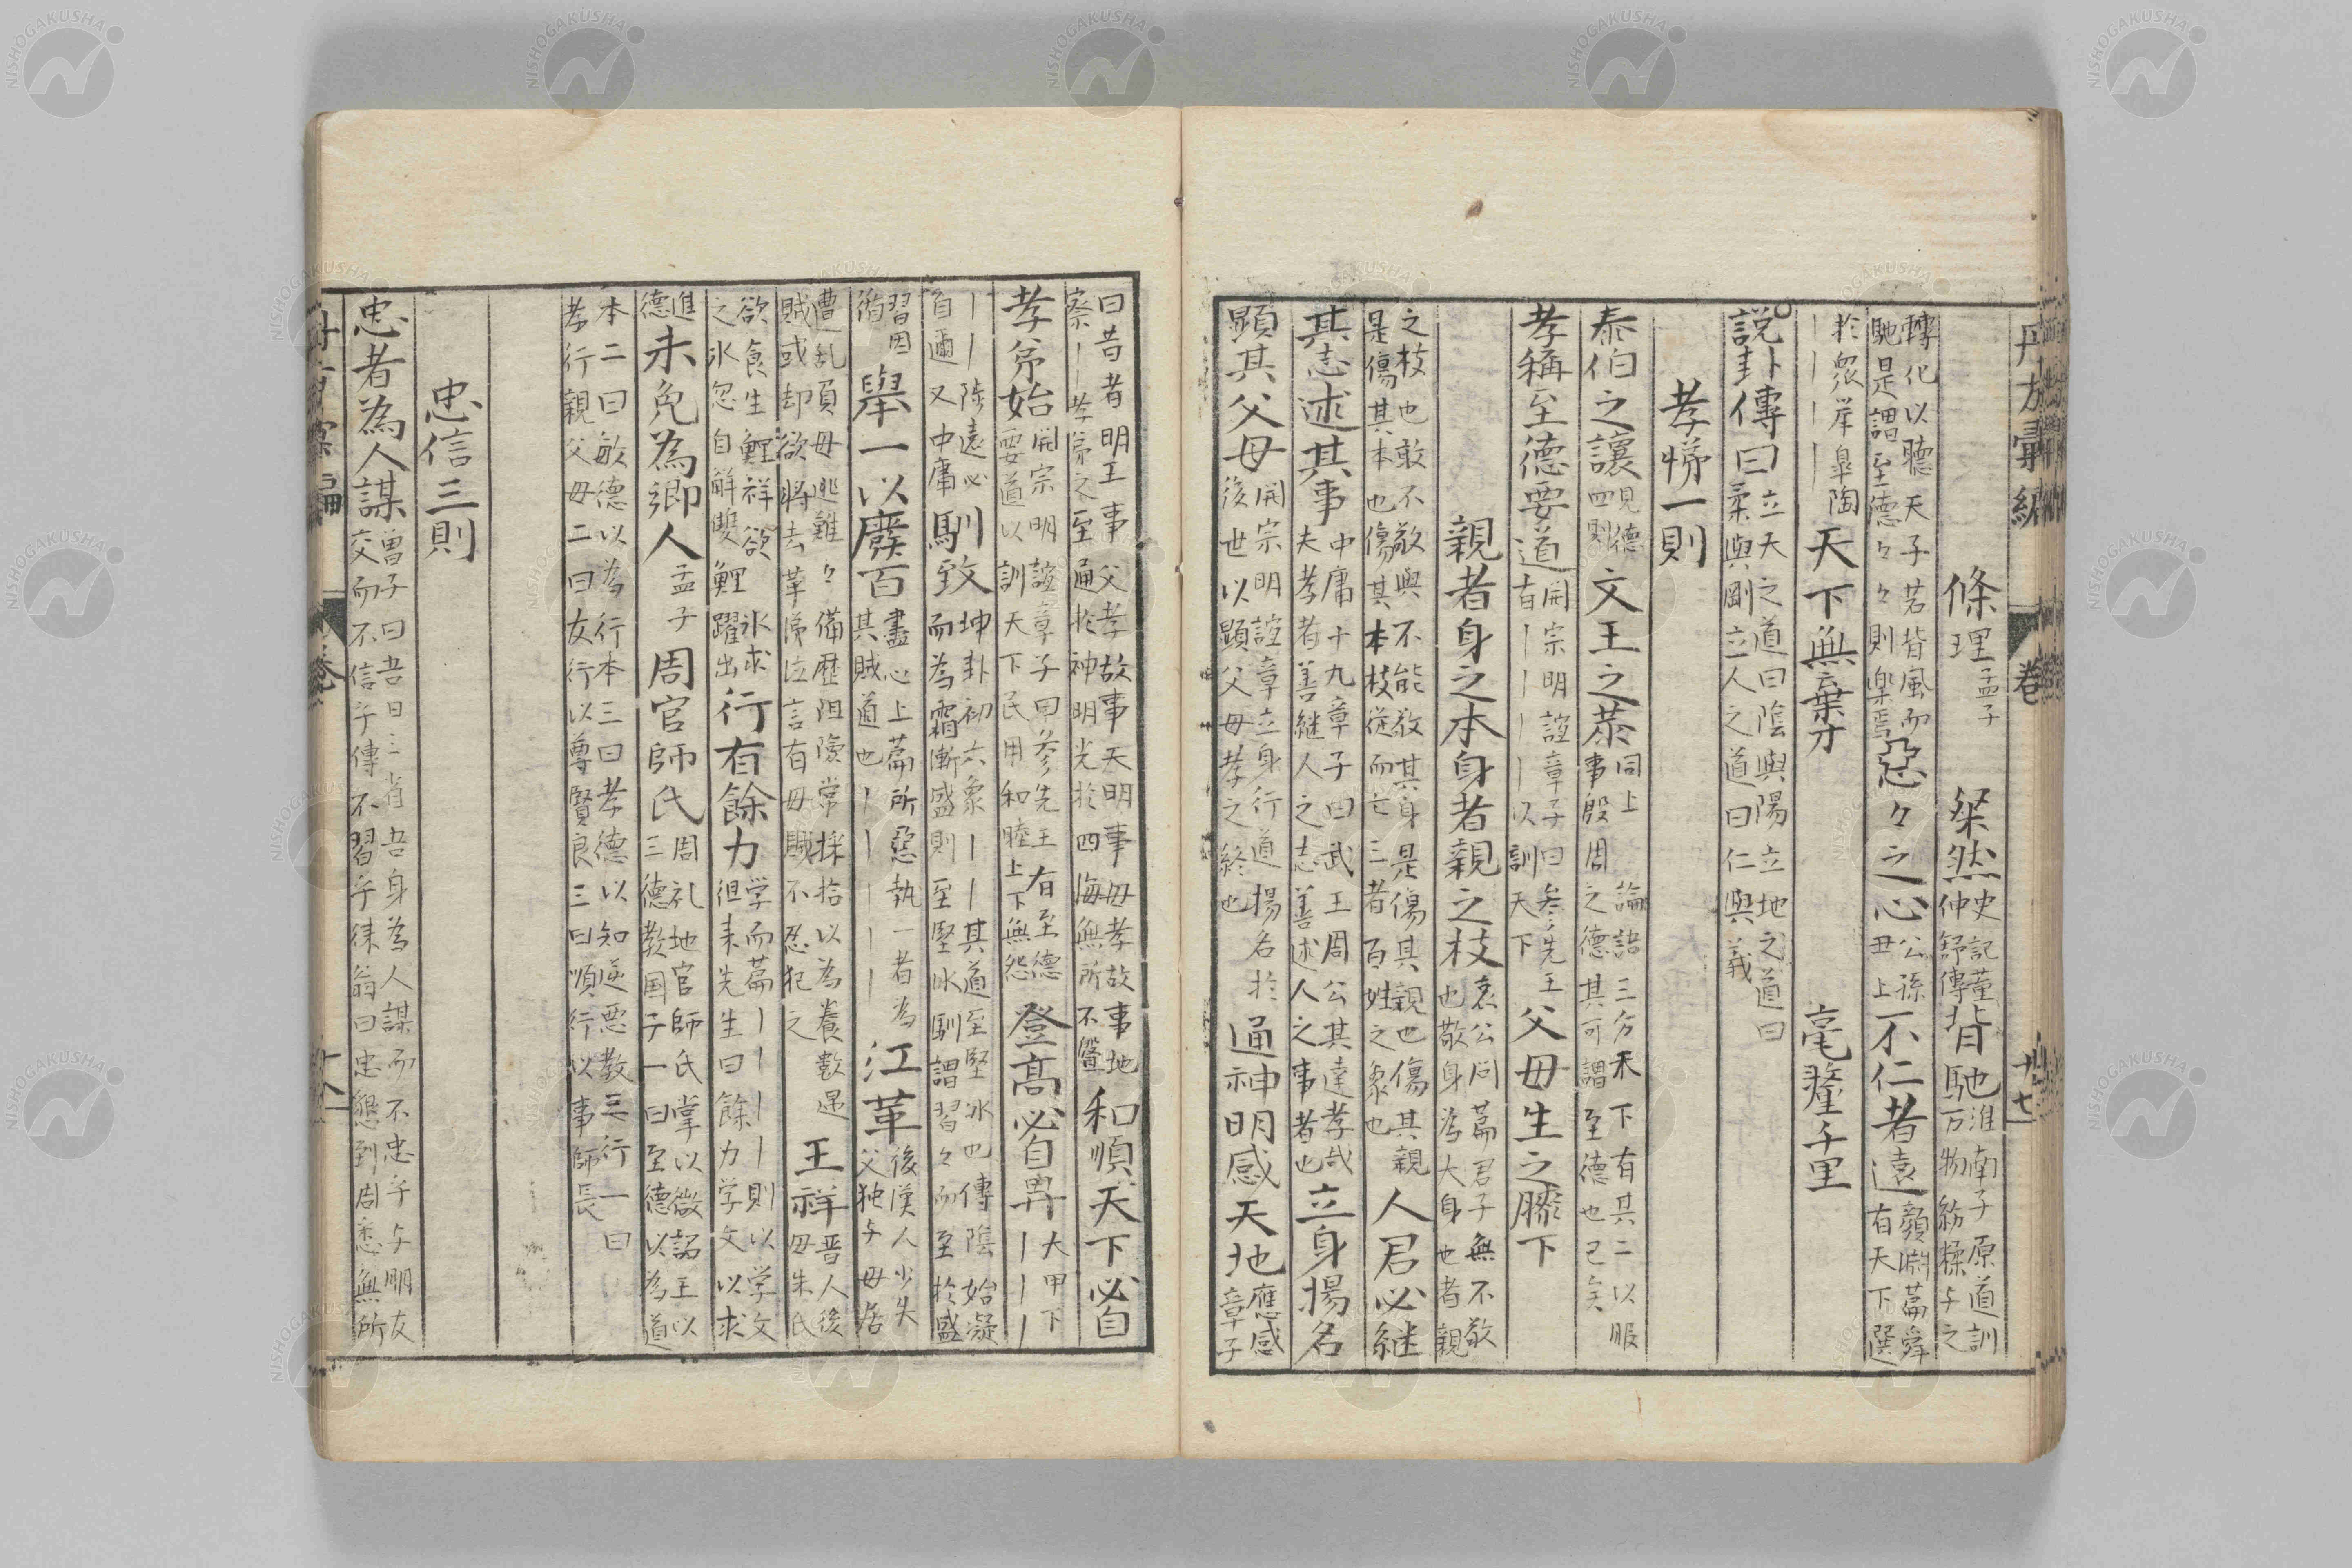 丹方彙編 卷 十七
條理孟子 粲然史記董仲舒傳背馳淮南子原道訓万物紛糅与之
轉化以聽天子若背風而馳是謂至德々々則樂焉惡々之心公孫丑上不仁者遠顏淵篇舜有天下選
於衆岸||||皐陶天下無棄才 毫釐千里
說卦傳曰立天之道曰陰與陽立地之道曰柔與剛立人之道曰仁與義
孝悌一則
泰伯之讓見德四則文王之恭同上論語三分天下有其二以服事殷周之德其可謂至德也已矣
孝稱至德要道開宗明誼章子曰參先王有||||以訓天下父母生之膝下
親者身之本身者親之枝哀公问篇君子無不敬也敬身為大身也者親
之枝也敢不敬與不能敬其身是傷其親也傷其親是傷其本也傷其本枝從而亡三者百姓之象也人君必継
其志述其事中庸十九章子曰武王周公其達孝哉夫孝者善継人之志善述人之事者也立身揚名
顯其父母開宗明誼章立身行道揚名於後世以顯父母孝之終也通神明感天地應感章子
曰昔者明王事父孝故事天明事母孝故事地察|孝弟之至通於神明光於四海無所不曁和順天下必自
孝弟始開宗明誼章子曰参先王有至德要道以訓天下民用和睦上下無怨登高必自卑大甲下|||
||陟遠必自邇又中庸馴致坤卦初六象||其道至堅冰也傳陰始凝而為霜漸盛則至堅冰馴謂習々而至於盛
習因循舉一以廢百盡心上篇所惡執一者為其賊道也||||||江革後漢人少失父独与母居
遭乱負母逃難々備歴阻險常採拾以為養數遇賊或却欲將去革涕泣言有母賊不忍犯之王祥晋人後母朱氏
欲食生鯉祥欲氷求之氷忽自解雙鯉躍出行有餘力学而篇||||則以学文徂徠先生曰餘力学文以求
進德未免為鄉人孟子周官師氏周礼地官師氏掌以媺詔王以三德教国子一曰至德以為道
本二曰敏德以為行本三曰孝德以知逆悪教三行一曰孝行親父母二曰友行以尊賢良三曰順行以事師長
忠信三則
忠者為人謀曽子曰吾日三省吾身為人謀而不忠乎与朋友交而不信乎傳不習乎徠翁曰忠懇到周悉無所